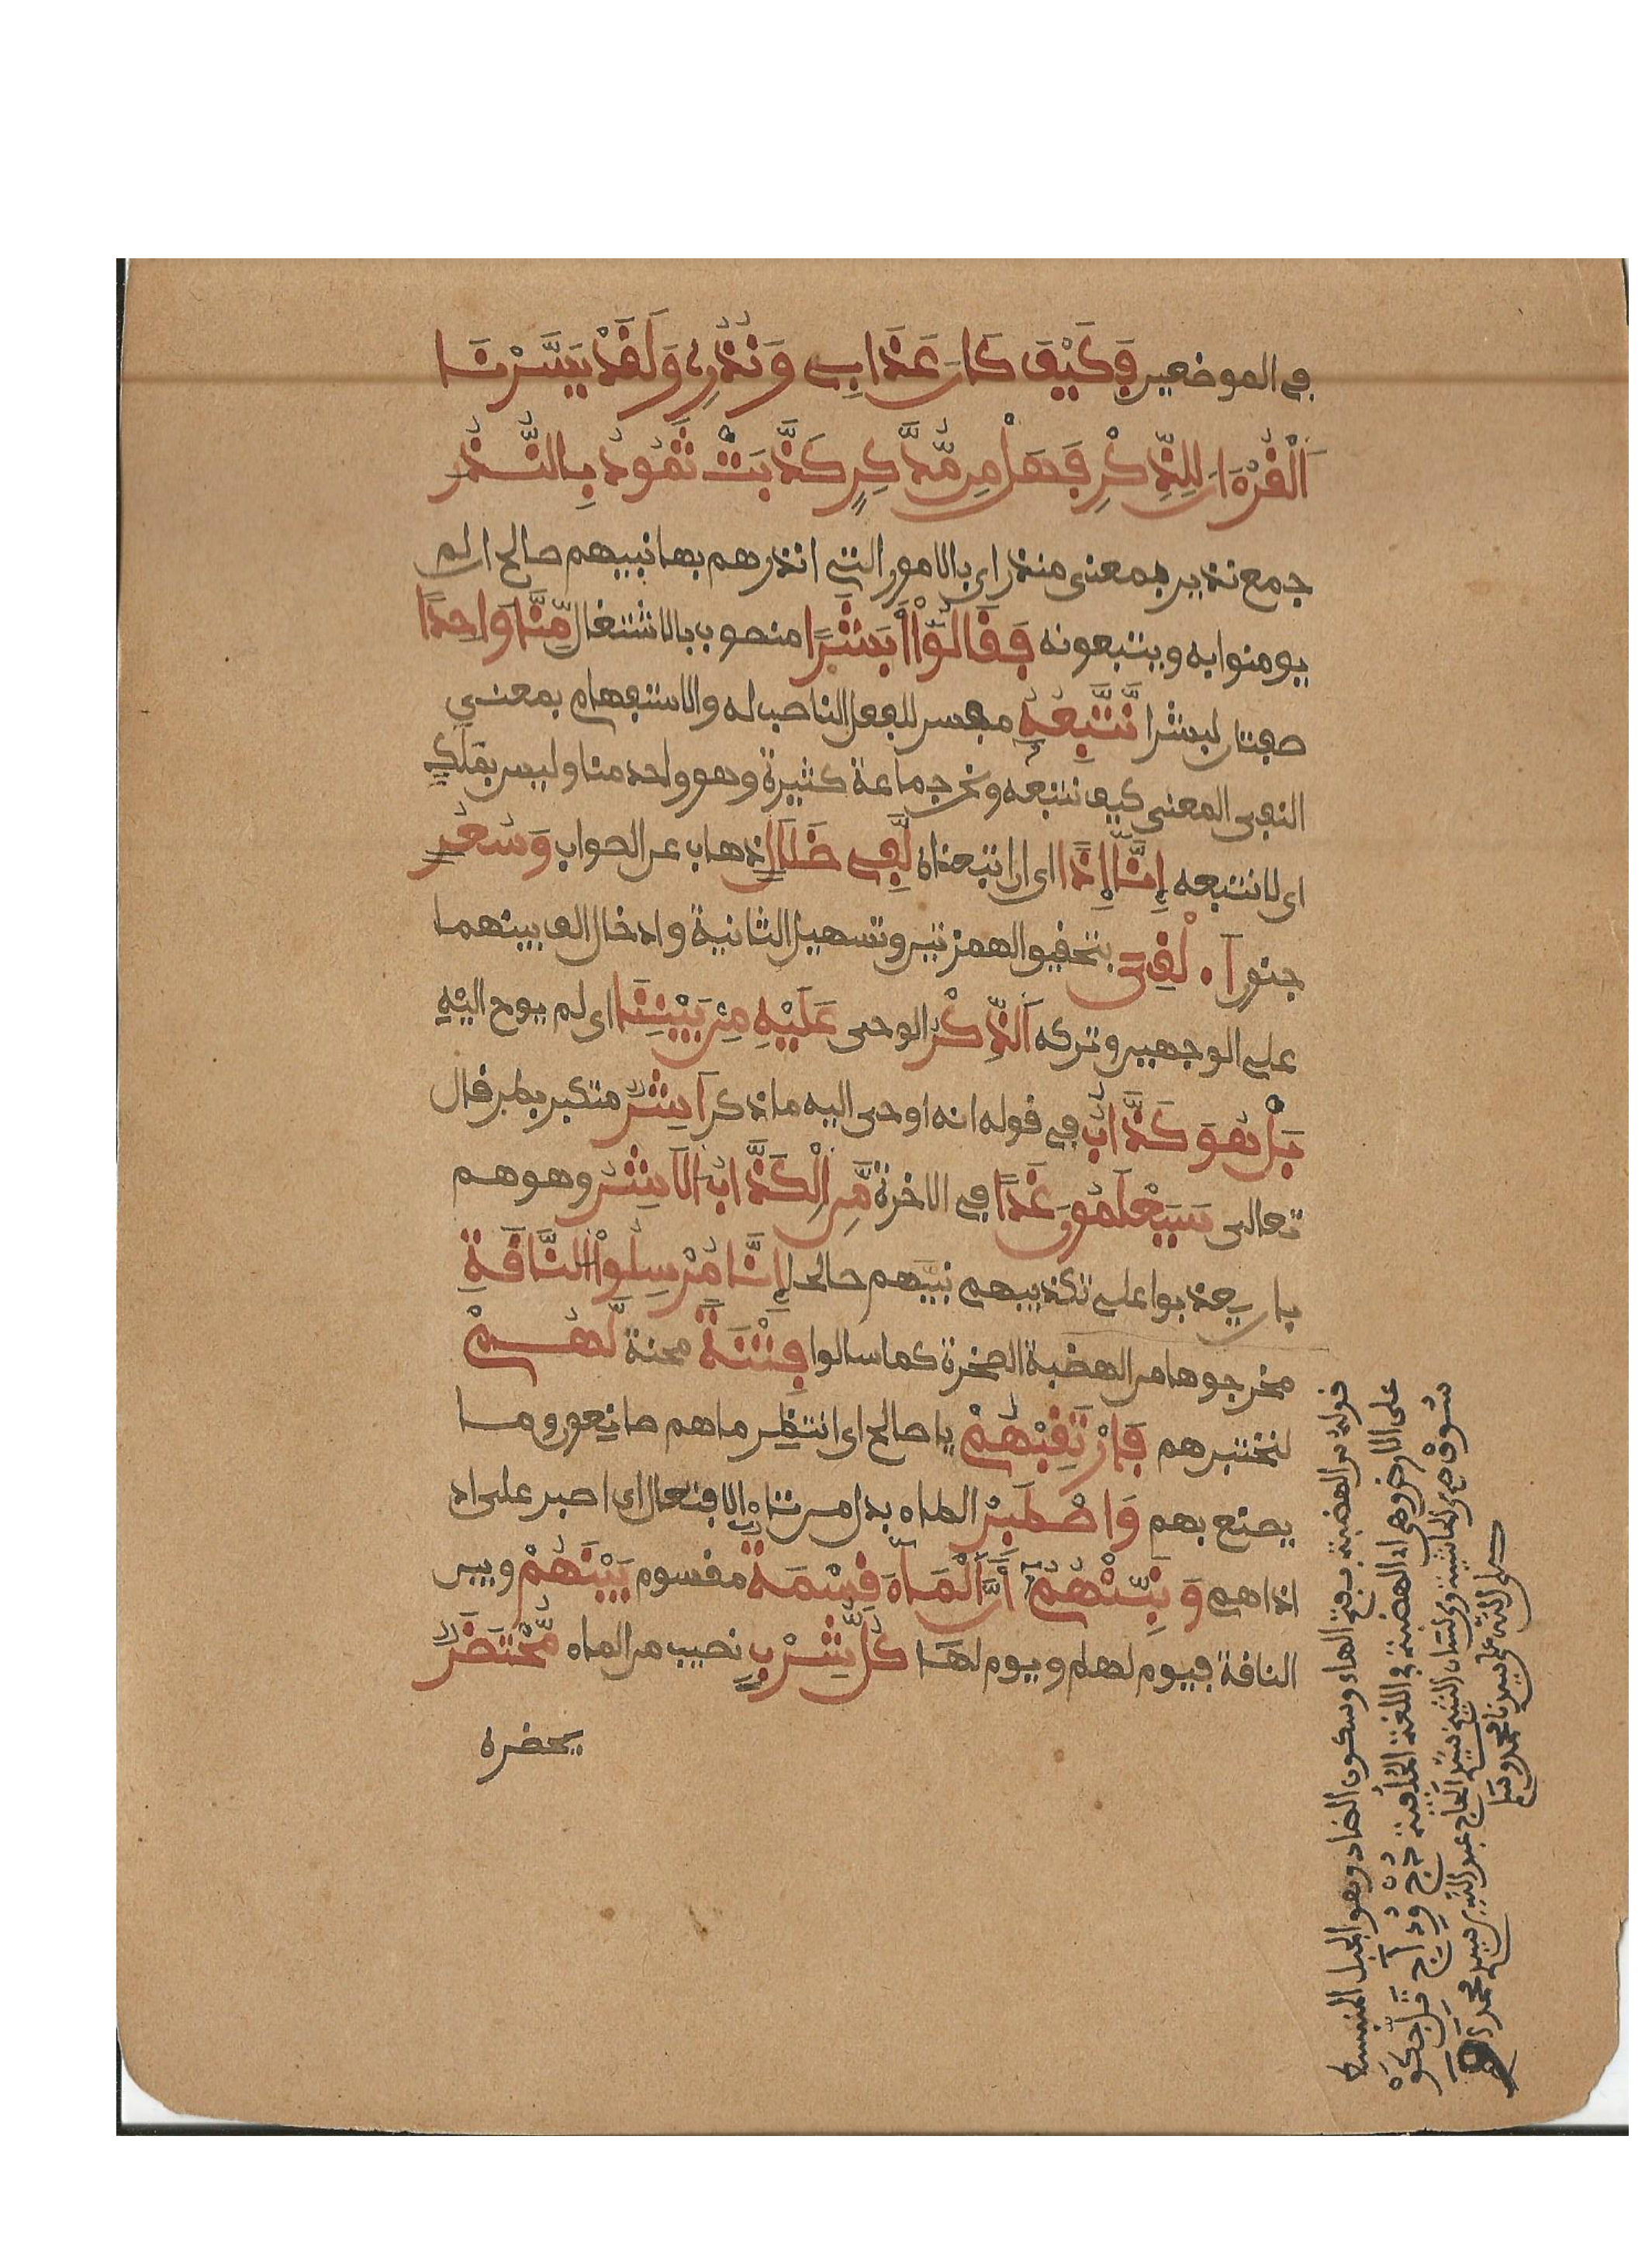 في الموضعين فَكَيْفَ كَانَ عَذَابِي وَنُذُرِ وَلَقَدْ يَسَّرْنَا
اَلْقُرْءَانَ لِلذِّكْرِ فَهَلْ مِن مُّدَّكِرٍ كَذَّبَتْ ثَمُودُ بِالنُّذُرِ
جمع نذير بمعنى منذر اى بالامور التي انذرهم بها نبيهم صالح ان لم
يومنوا به ويتبعونه فَقَالُوٓاْ أَبَشَرًا منصوب بالاشتغال مِّنَّا وَاحِدًا
صفتان لبشرا نَّتَّبِعُهُ مفسر للفعل الناصب له والاستفهام بمعنى
النفى المعنى كيف نتبعه ونحن جماعة كثيرة وهو واحد منا وليس بملك
اى لا نتبعه إِنَّآ إِذًا اى ان اتبعناه لَّفِي ضَلَٰلٍ ذهاب عن الصواب وَسُعُرٍ
جنون أ.لْقِيَ بتحقيق الهمزتين وتسهيل الثانية وادخال الف بينهما
على الوجهين وتركه اَلذِّكْرُ الوحى عَلَيْهِ مِنۢ بَيْنِنَا اى لم يوح اليه
بَلْ هُوَ كَذَّابٌ في قوله انه اوحى اليه ما ذكر اَشِرٌ متكبر بطر قال
تعالى سَيَعْلَمُونَ غَدًا في الاخرة مَّنِ الْكَذَّابُ الَاشِرُ وهو هم
بان يعذبوا على تكذيبهم نبيّهم صالحا إِنَّا مُرْسِلُواْ النَّاقَةِ
مخرجوها من الهضبة الصخرة كما سالوا فِتْنَةً محنة لَّهُمْ
لنختبرهم فَارْتَقِبْهُمْ يا صالح اى انتظر ما هم صانعون وما
يصنع بهم وَاصْطَبِرْ الطاء بدل من تاء الافتعال اى اصبر على اذ
اذاهم وَنَبِّئْهُمُ أَنَّ اَلْمَآءَ قِسْمَةٌ مقسوم بَيْنَهُمْ وبين
الناقة فيوم لهم ويوم لها كُلُّ شِرْبٍ نصيب من الماء مُّحْتَضَرٌ
يحضره
قوله من الهضبة بفتح الهاء وسكون الضاد وهو الجبل المنبسط
على الارض وهى اى الهضبة في اللغة
صلى الله على سيدنا محمد وسلم